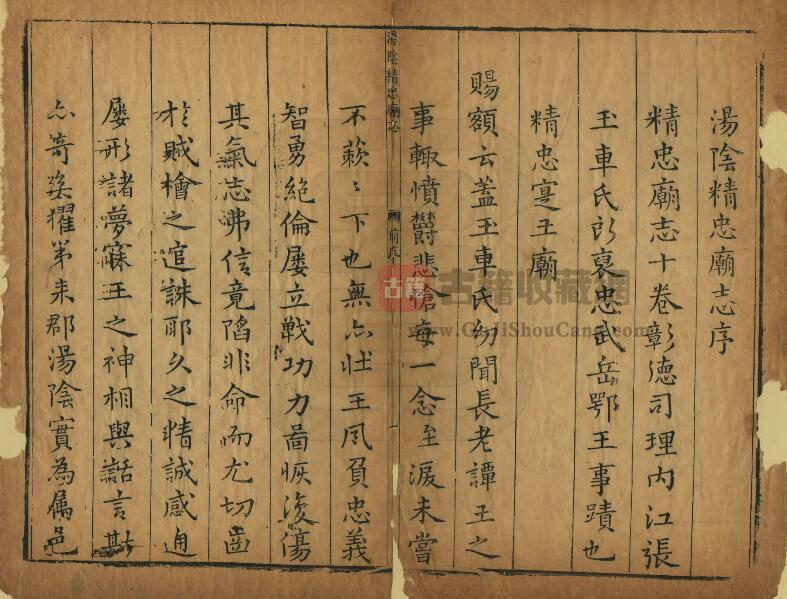 湯陰精忠廟志序
精忠廟志十卷彰德司理内江張
玉車氏所裒忠武岳鄂王事蹟也
精忠寔王廟
賜額云蓋玉車氏幼聞長老譚王之
事輙憤欝悲愴每一念至淚未嘗
不蔌〻下也無亦壯王夙負忠義
智勇絶倫屡立戰功力啚恢復傷
其氣志沸信竟䧟非命而尤切齒
於賊檜之逭誅耶久之精誠感通
屡形諸夢寐王之神相與話言斯
亦奇矣擢第来郡湯陰實為属邑
湯陰精忠廟志
前序
古籍
古籍收藏網
www.GuJiShouCang.com